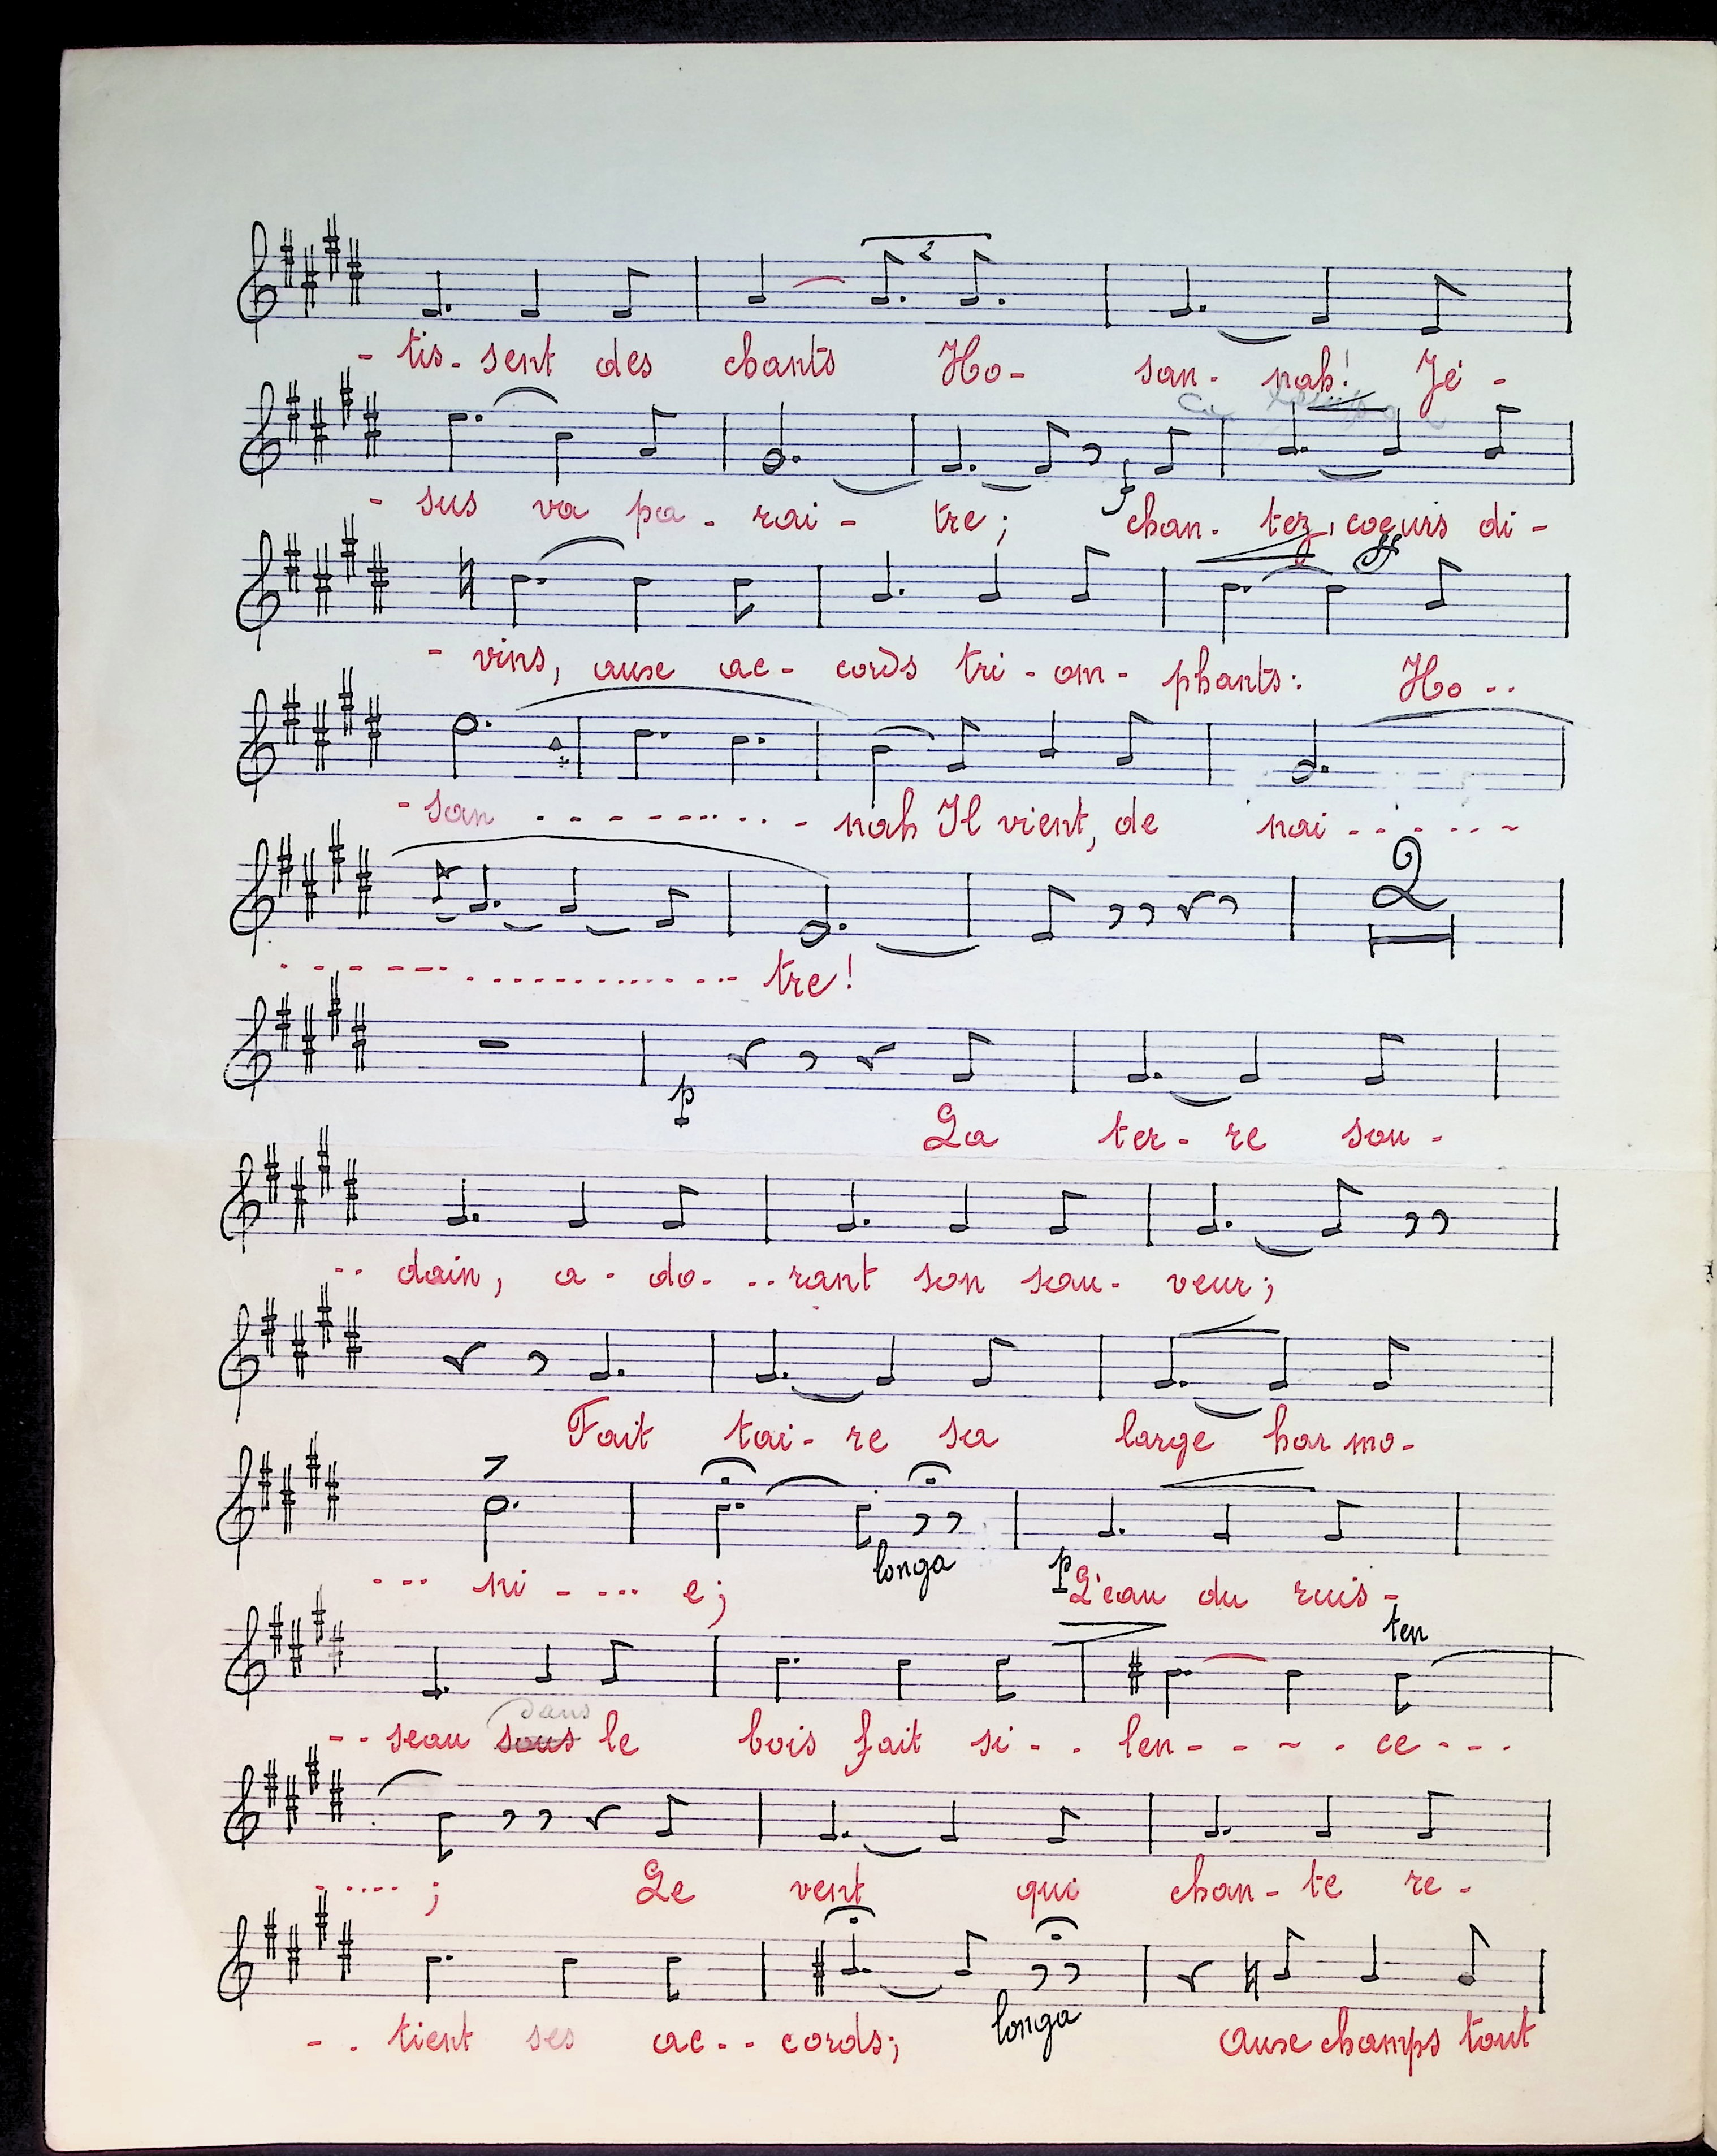 - tis - sent des chants Ho - san - nah! Jé -
- sus va pa - rai - tre; chan - tez, coeurs di -
f
- vins, aux ac - cords tri - om - phants: Ho - -
ff
- san - - - - - - - - - nah Il vient, de nai - - - - - -
2
- - - - - - - - - - - - - - - - - - - tre!
p
La ter - re sou -
- - dain, a - do - - - rant son sau - veur;
Fait tai - re sa large har mo -
longa p
- - - ni - - - - - e; L'eau du ruis -
ten
dans
- - seau sous le bois fait si - - len - - - - - ce - - -
- - - - - ; Le vent qui chan - te re -
longa
- - tient ses ac - - cords; Aux champs tout